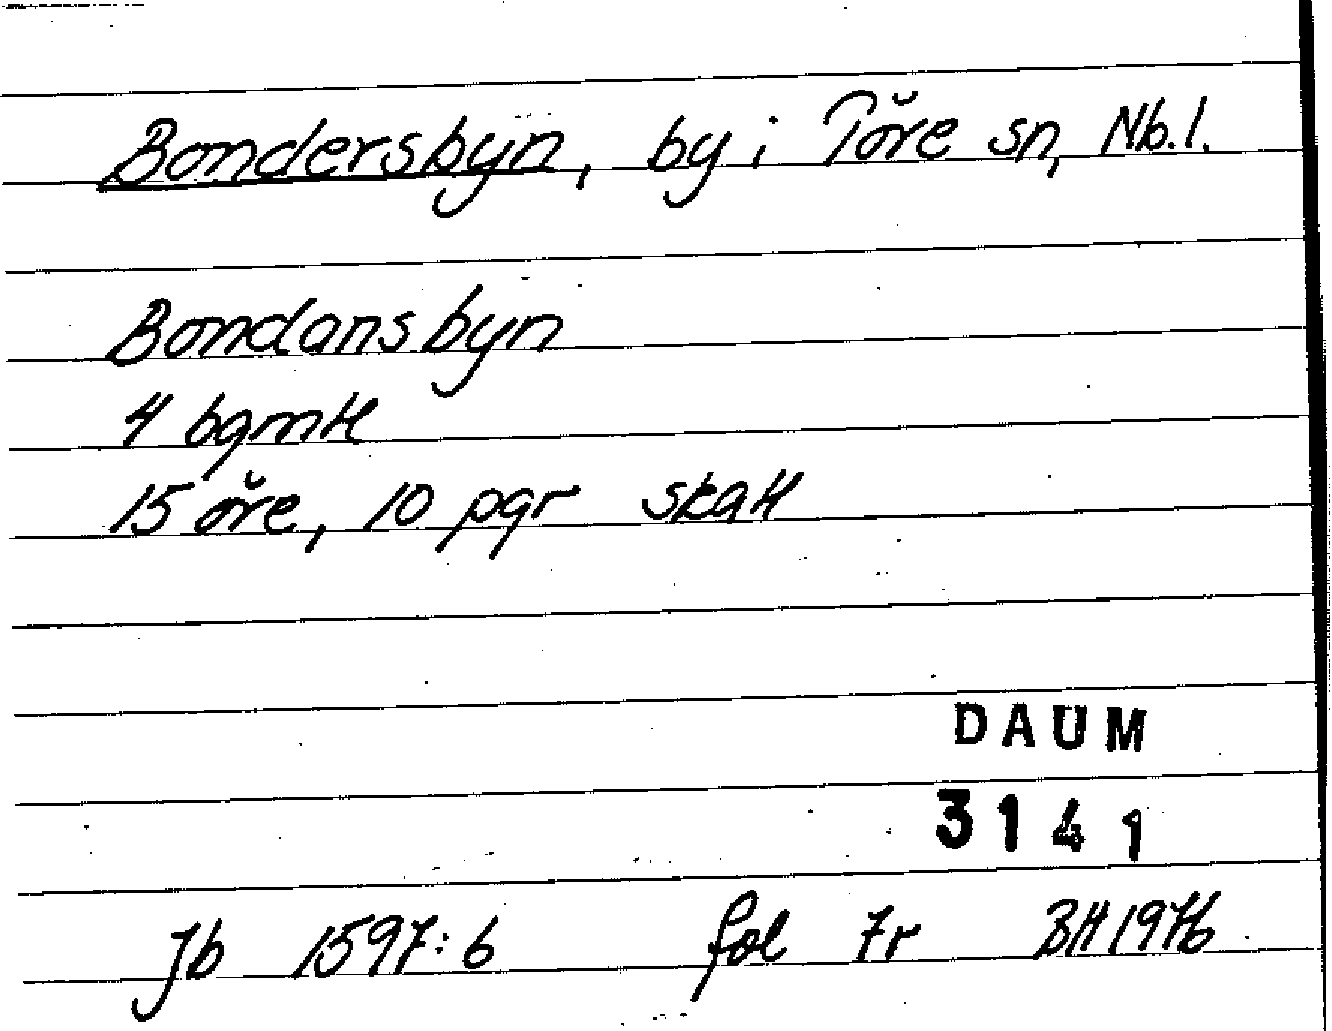 Bondersbyn, by i Töre sn, Nb.l.
Bondansbyn
4 bgmtl
15 öre, 10 pgr skatt
DAUM
3141
Jb 1597:6 fol 7r BH 1976